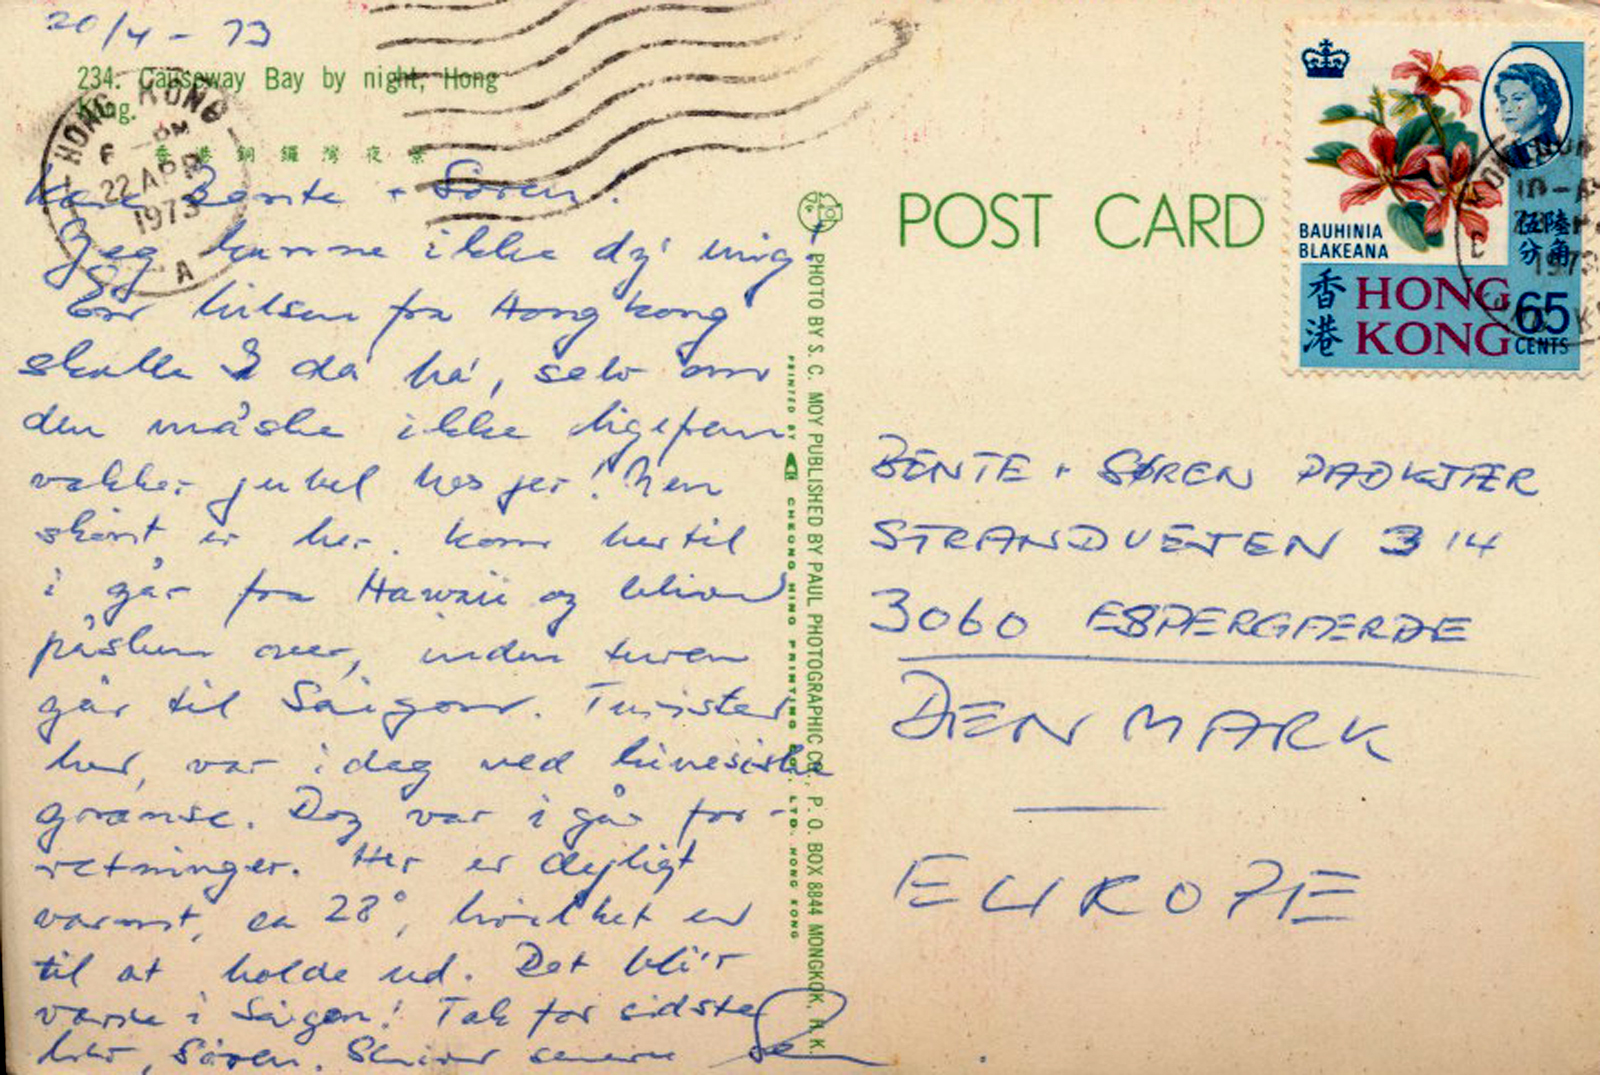 20/4 - 73
234. Causeway Bay by night, Hong
Kong.
香 港 銅 鑼 灣 夜 景
HONG KONG
6 - PM
22 APR
1973
A
Kære Bente + Søren!
Jeg kunne ikke dy' mig!
En hilsen fra Hong Kong
skulle I da ha', selv om
den måske ikke ligefrem
vækker jubel hos jer! Men
skønt er her. Kom hertil
i går fra Hawaii og bliver
påsken over, inden turen
går til Saigon. Turister
her, var idag ved kinesiske
grænse. Dog var i går for-
retninger. Her er dejligt
varmt, ca 28°, hvilket er
til at holde ud. Det bli'r
værre i Saigon! Tak for sidste
brev, Søren. Skriver senere
PHOTO BY S. C. MOY PUBLISHED BY PAUL PHOTOGRAPHIC CO., P. O. BOX 8844 MONGKOK, H.K.
PRINTED BY CHEONG MING PRINTING LTD. HONG KONG
POST CARD
BAUHINIA
BLAKEANA
伍陸
分角
香港
HONG
KONG
65
CENTS
1973
BENTE + SØREN PADKJÆR
STRANDVEJEN 314
3060 ESPERGÆRDE
DENMARK
EUROPE